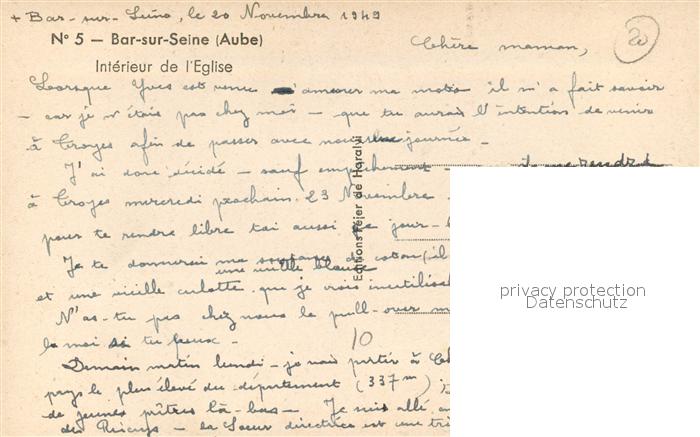 + Bar-sur-Seine, le 20 Novembre 1949
N° 5 — Bar-sur-Seine (Aube)
Intérieur de l'Eglise
20
Chère maman,
Lorsque Yves est venu m'amener ma moto il m'a fait savoir
- car je n'étais pas chez moi - que tu aurais l'intention de venir
à Troyes afin de passer avec nous une journée.
J'ai donc décidé - sauf empêchement - me rendre
à Troyes mercredi prochain 23 Novembre
pour te rendre libre toi aussi ce jour-
Je te donnerai ma de coton (il
une vieille blouse
et une vieille culotte que je crois inutilisa
N'as-tu pas chez nous le pull-over m
la moi si tu peux -
10
Demain matin lundi - je vais partir à
pays le plus élevé du département (337m)
de jeunes prêtres là-bas - Je suis allé
des Riceys - la Soeur directrice est une
Editions Fejer de Haralyi
privacy protection
Datenschutz